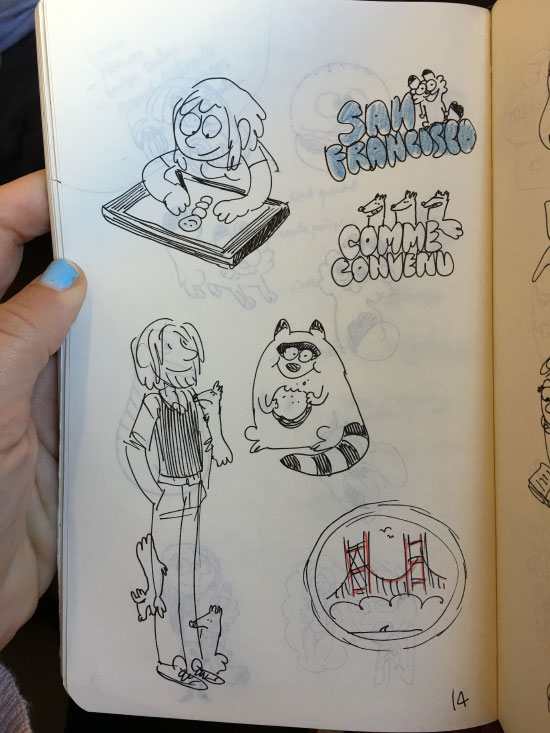 SAN
FRANCISCO
COMME
CONVENU
14